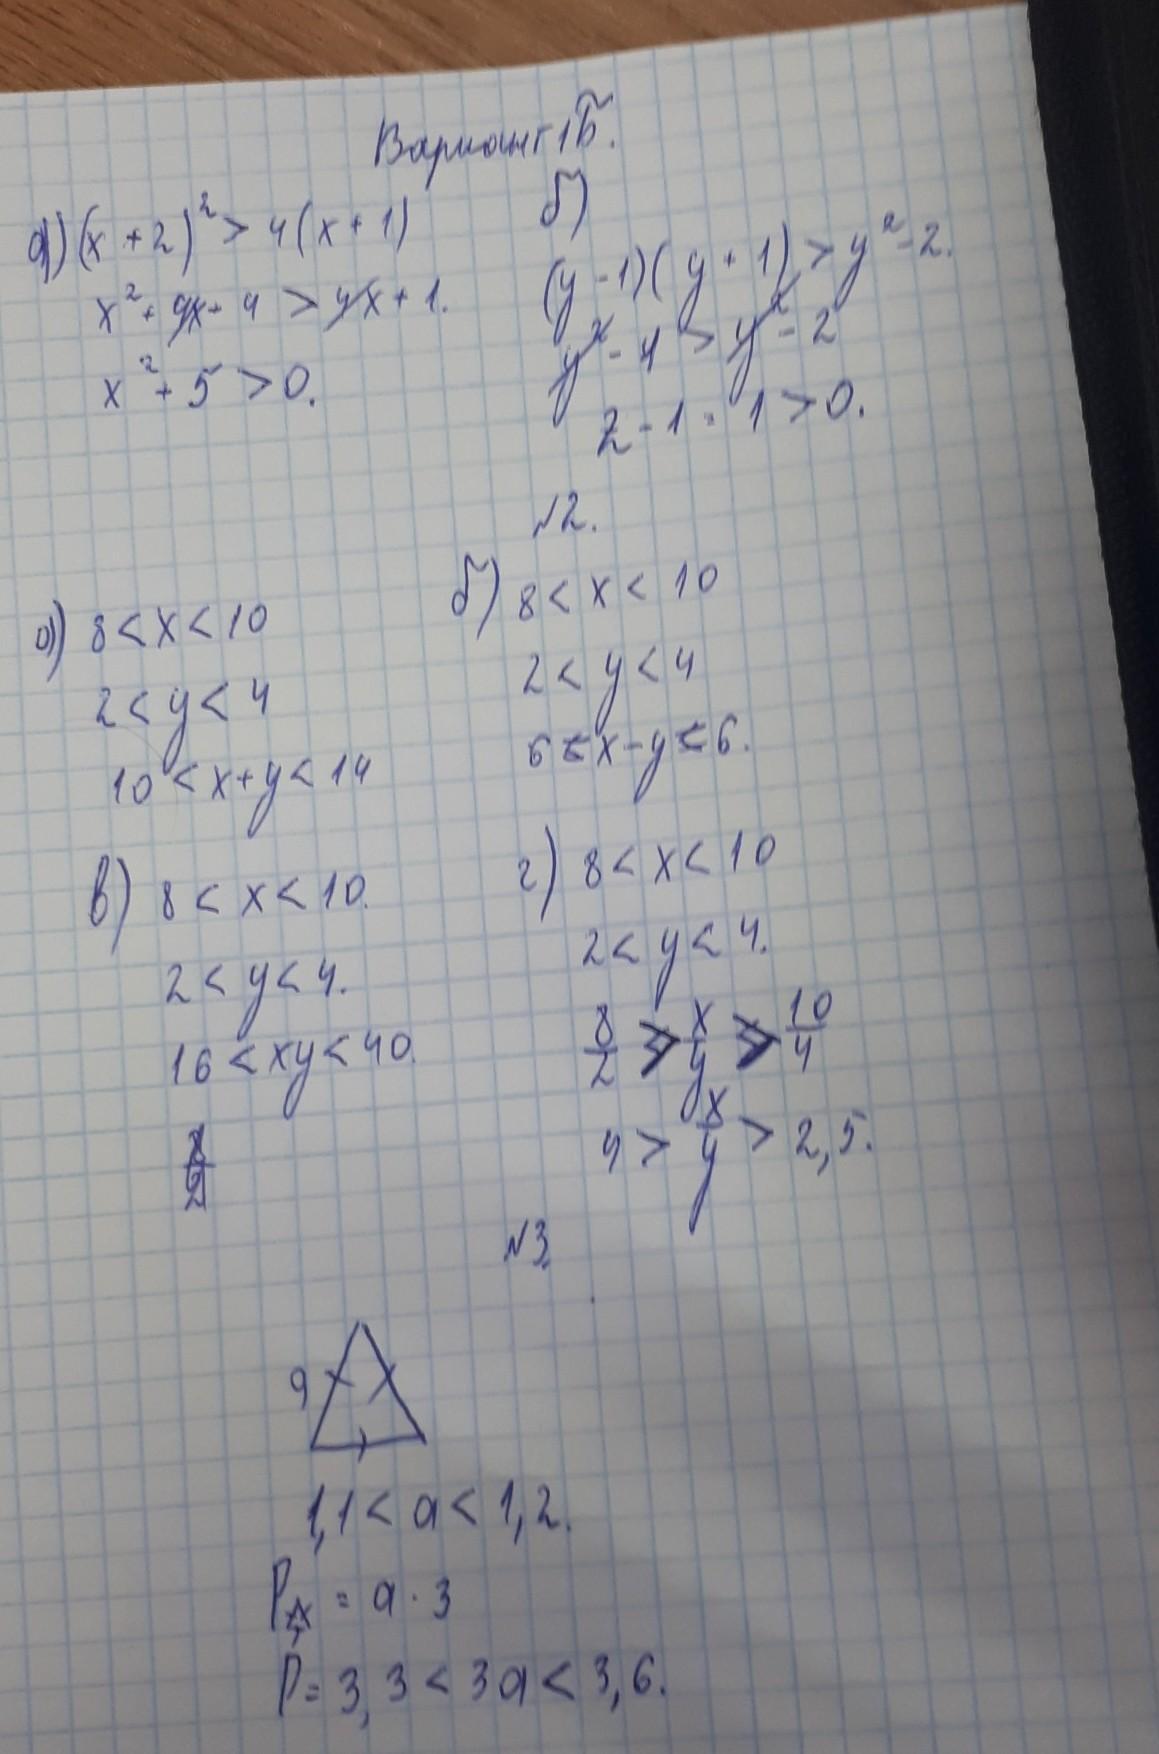 Вариант 1Б.
а) (x + 2)² > 4(x + 1)
x² + 4x + 4 > 4x + 1.
x² + 5 > 0.
б)
(y - 1)(y + 1) > y² - 2.
y² - 1 > y² - 2
2 - 1 = 1 > 0.
№2.
а) 8 < x < 10
2 < y < 4
10 < x + y < 14
б) 8 < x < 10
2 < y < 4
6 < x - y < 6.
в) 8 < x < 10.
2 < y < 4.
16 < xy < 40.
г) 8 < x < 10
2 < y < 4.
8/2 > x/y > 10/4
4 > x/y > 2,5.
№3.
a
1,1 < a < 1,2.
P△ = a · 3
P = 3,3 < 3a < 3,6.